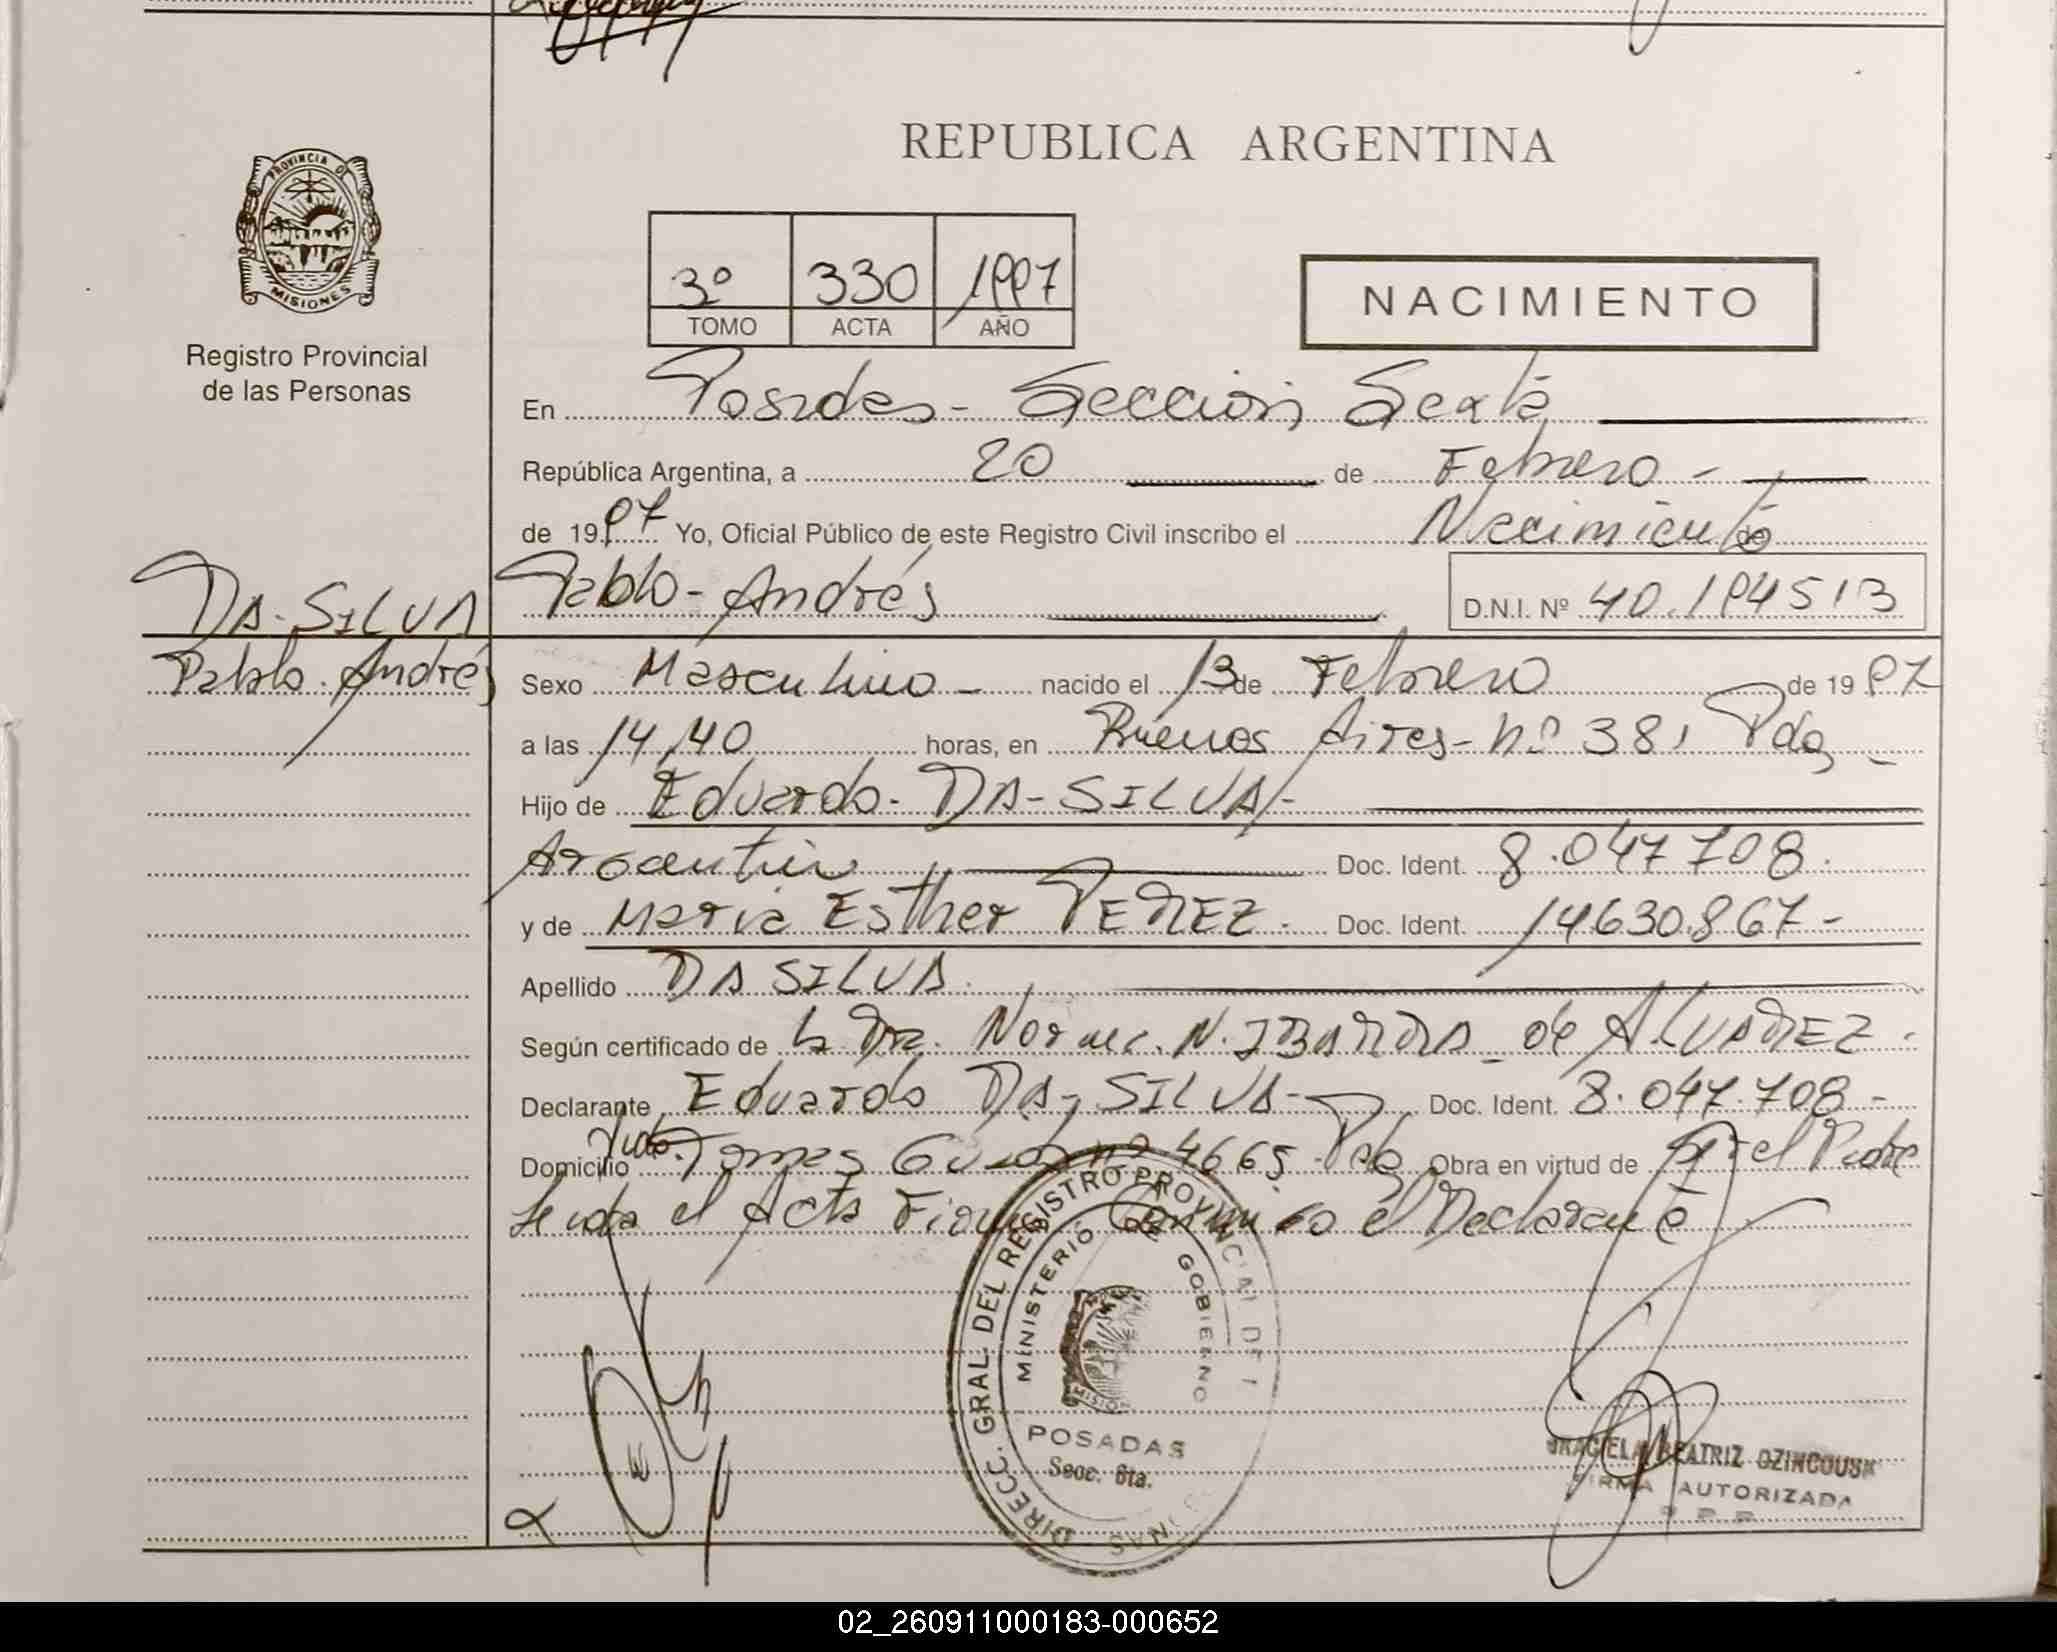 REPUBLICA ARGENTINA
PROVINCIA DE
MISIONES
Registro Provincial
de las Personas
3º 330 1997
TOMO ACTA AÑO
NACIMIENTO
En Posadas - Sección Sexta
República Argentina, a 20 de Febrero -
de 1997 Yo, Oficial Público de este Registro Civil inscribo el Nacimiento de
DA-SILVA
Pablo-Andrés
Pablo-Andrés D.N.I. Nº 40.194513
Sexo Masculino - nacido el 13 de Febrero de 1997
a las 14,40 horas, en Buenos Aires-nº 381 Pdas -
Hijo de Eduardo- DA-SILVA-
Argentino Doc. Ident. 8.047708.
y de Maria Esther PEREZ. Doc. Ident. 14630.867-
Apellido DA SILVA.
Según certificado de la Dra. Norma. N. IBARRA - de ALVAREZ.
Declarante Eduardo DA-SILVA- Doc. Ident. 8.047.708-
Domicilio Tomas Guido nº 4665 Pdas Obra en virtud de ser el Padre
Leida el Acta Firma Conmigo el Declarante
DIRECC. GRAL. DEL REGISTRO PROVINCIAL DE
MINISTERIO DE GOBIERNO
POSADAS
Secc. 6ta.
GRACIELA BEATRIZ
FIRMA AUTORIZADA
02_260911000183-000652